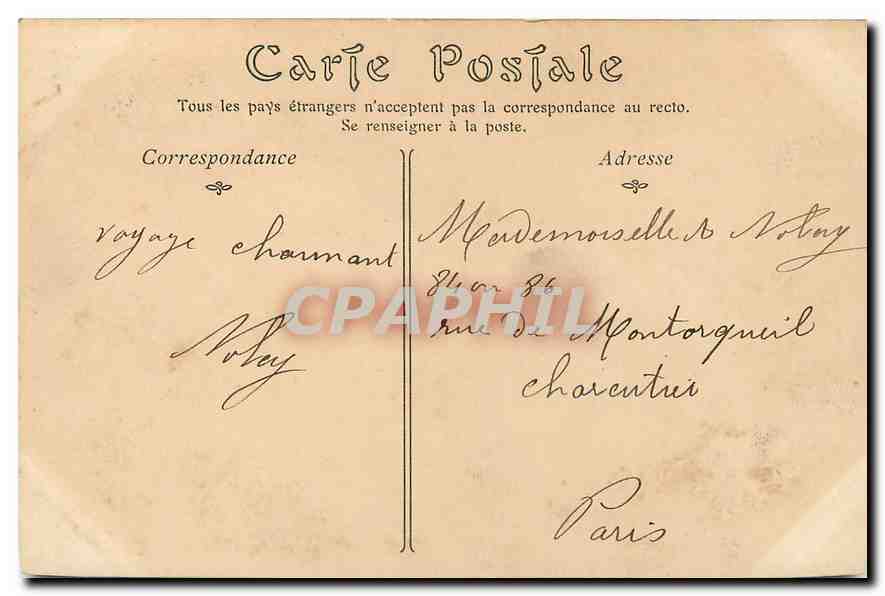 Carte Postale
Tous les pays étrangers n'acceptent pas la correspondance au recto.
Se renseigner à la poste.
Correspondance
Adresse
voyage charmant
Mademoiselle
84 ou 86
rue de Montorgueil
charcutier
Paris
CPAPHIL